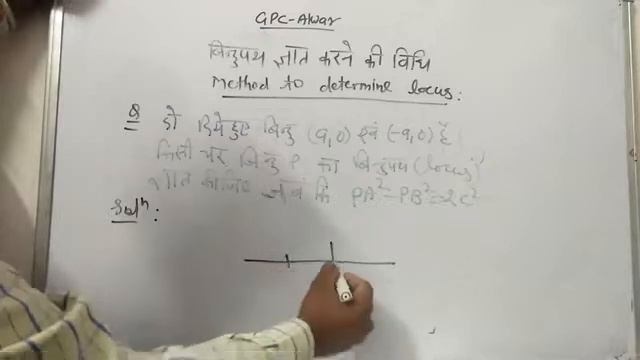 GPC-Alwar
बिन्दुपथ ज्ञात करने की विधि
Method to determine locus:
Q दो दिये हुए बिन्दु (a,0) एवं (-a,0) हैं
किसी चर बिन्दु P का बिन्दुपथ (locus)
ज्ञात कीजिए जब कि PA²-PB²=2c²
Solⁿ: